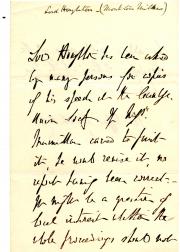 Lord Houghton (Monckton Milnes)
Lord Houghton has been asked
by many persons for copies
of his speech at the
Union Socy. If Messrs
Macmillan cared to print
it, he would revise it, no
report having been correct.
It might be a question of
local interest whether the
whole proceedings should not